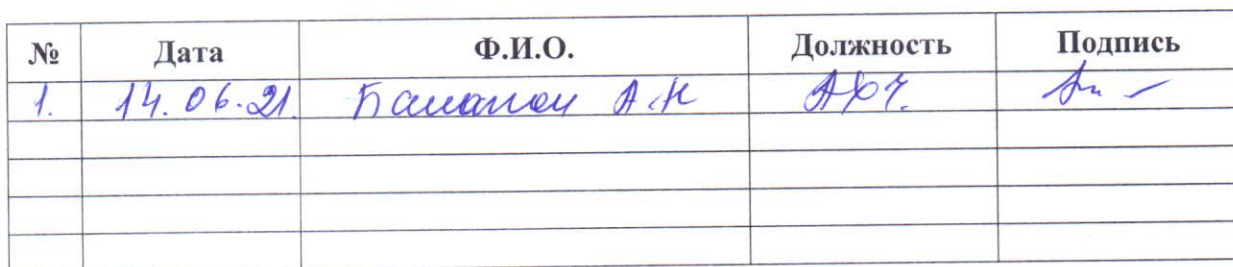 № Дата Ф.И.О. Должность Подпись
1. 14.06.21. А.Н АХЧ.